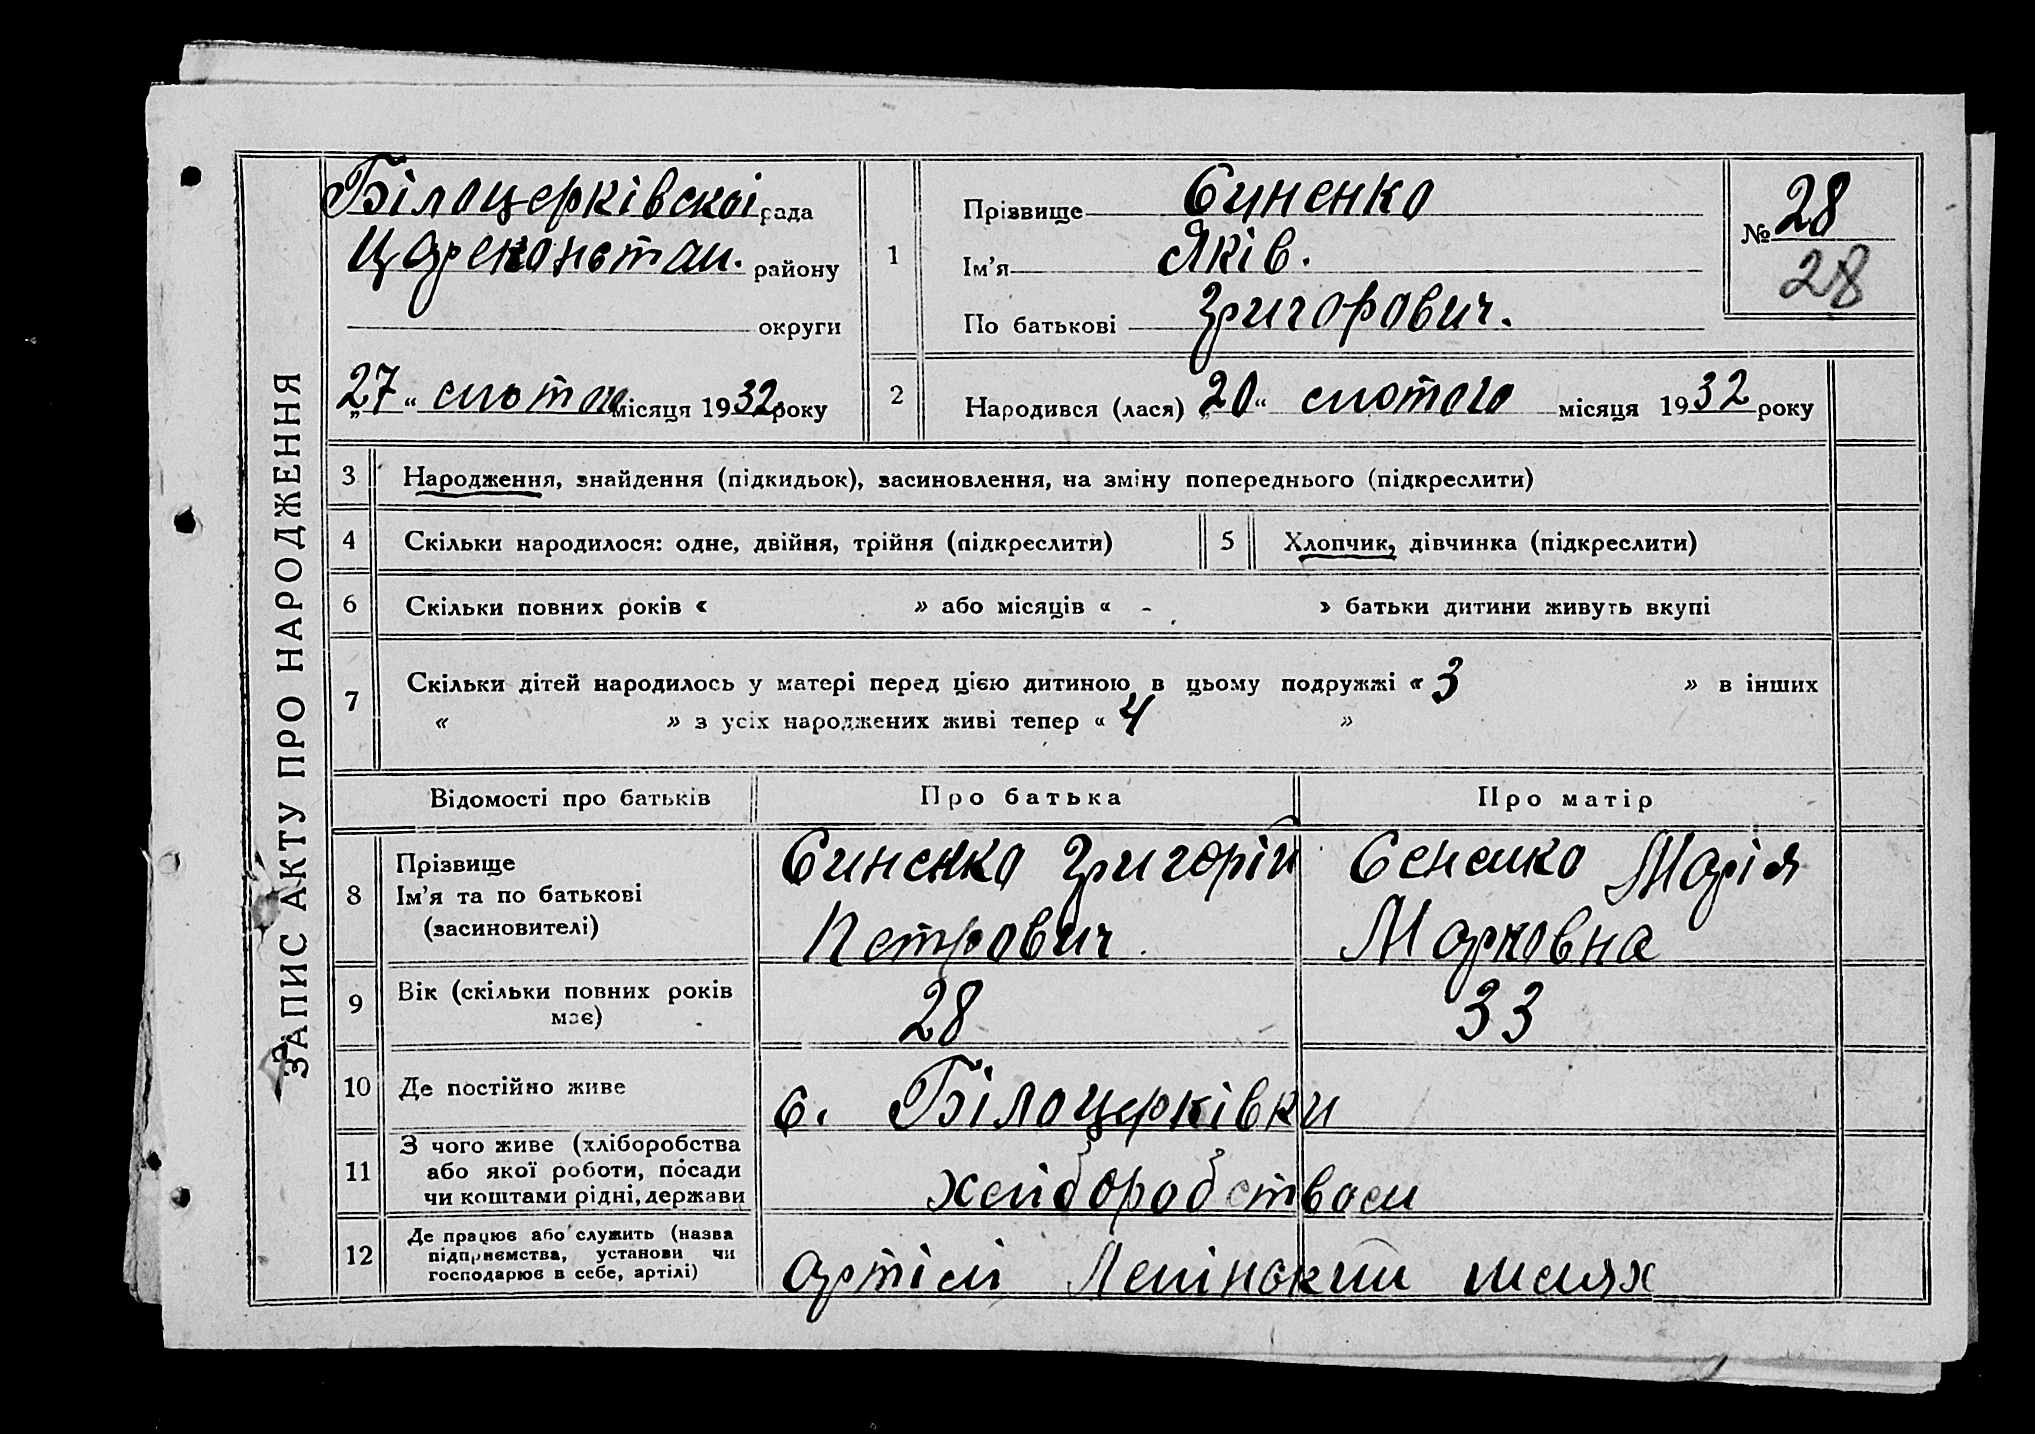 ЗАПИС АКТУ ПРО НАРОДЖЕННЯ
Білоцерківскоі рада
Цареконстан. району
округи
„27“ лютого місяця 1932 року
1
Прізвище Синенко
Ім'я Яків.
По батькові Григорович.
№ 28
28
2
Народився (лася) „20“ лютого місяця 1932 року
3 Народження, знайдення (підкидьок), засиновлення, на зміну попереднього (підкреслити)
4 Скільки народилося: одне, двійня, трійня (підкреслити) 5 Хлопчик, дівчинка (підкреслити)
6 Скільки повних років « » або місяців « - » батьки дитини живуть вкупі
7 Скільки дітей народилось у матері перед цією дитиною в цьому подружжі « 3 » в інших
« » з усіх народжених живі тепер « 4 »
Відомості про батьків Про батька Про матір
8 Прізвище
Ім'я та по батькові
(засиновителі)
Синенко Григорій
Петрович
Сененко Марія
Марковна
9 Вік (скільки повних років
має)
28 33
10 Де постійно живе с. Білоцерківки
11 З чого живе (хліборобства
або якої роботи, посади
чи коштами рідні, держави
хліборобством
12 Де працює або служить (назва
підприємства, установи чи
господарює в себе, артілі)
артілі Ленінский шлях